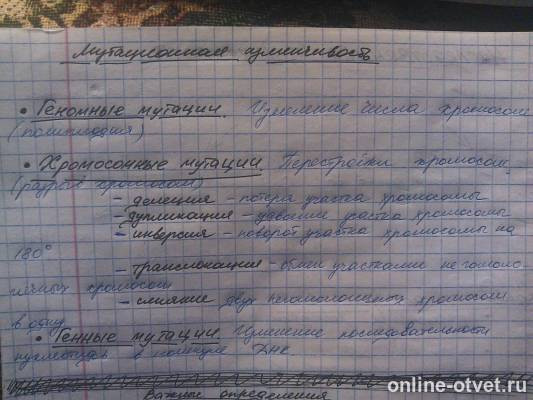 Мутационная изменчивость
• Геномные мутации. Изменение числа хромосом
(полиплоидия)
• Хромосомные мутации. Перестройки хромосом.
(разрыв хромосом)
– делеция – потеря участка хромосомы
– дупликация – удвоение участка хромосомы
– инверсия – поворот участка хромосомы на
180°
– транслокация – обмен участками не гомоло
гичных хромосом
– слияние двух негомологичных хромосом
в одну
• Генные мутации. Изменение последовательности
нуклеотидов в молекуле ДНК
Важные определения
online-otvet.ru